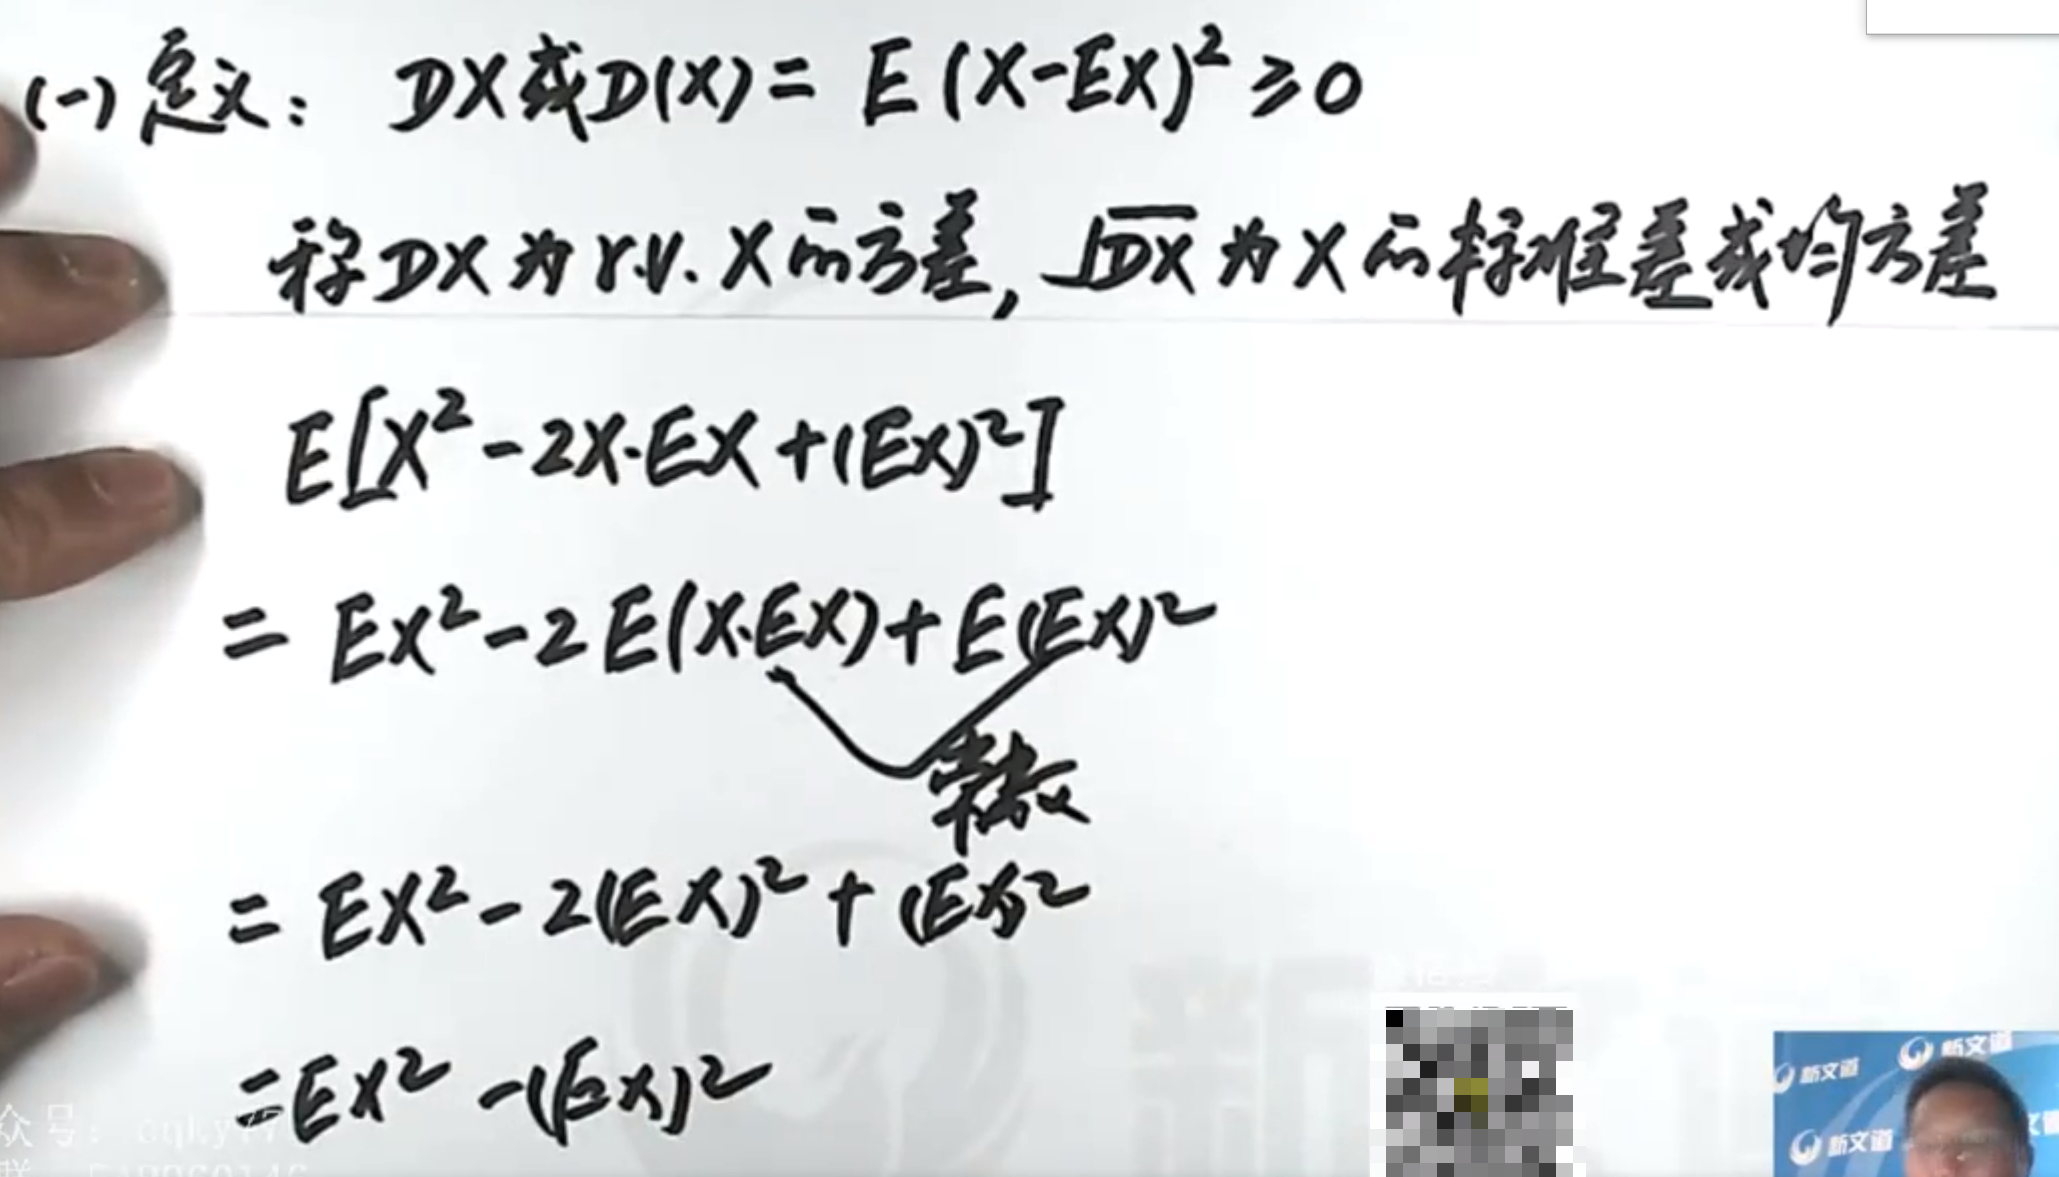 (一) 定义: DX或D(X) = E(X-EX)² ≥ 0
称DX为r.v. X的方差, √DX 为X的标准差或均方差
E[X² - 2X·EX + (EX)²]
= EX² - 2E(X·EX) + E(EX)²
常数
= EX² - 2(EX)² + (EX)²
= EX² - (EX)²
新文道
新文道
新文道